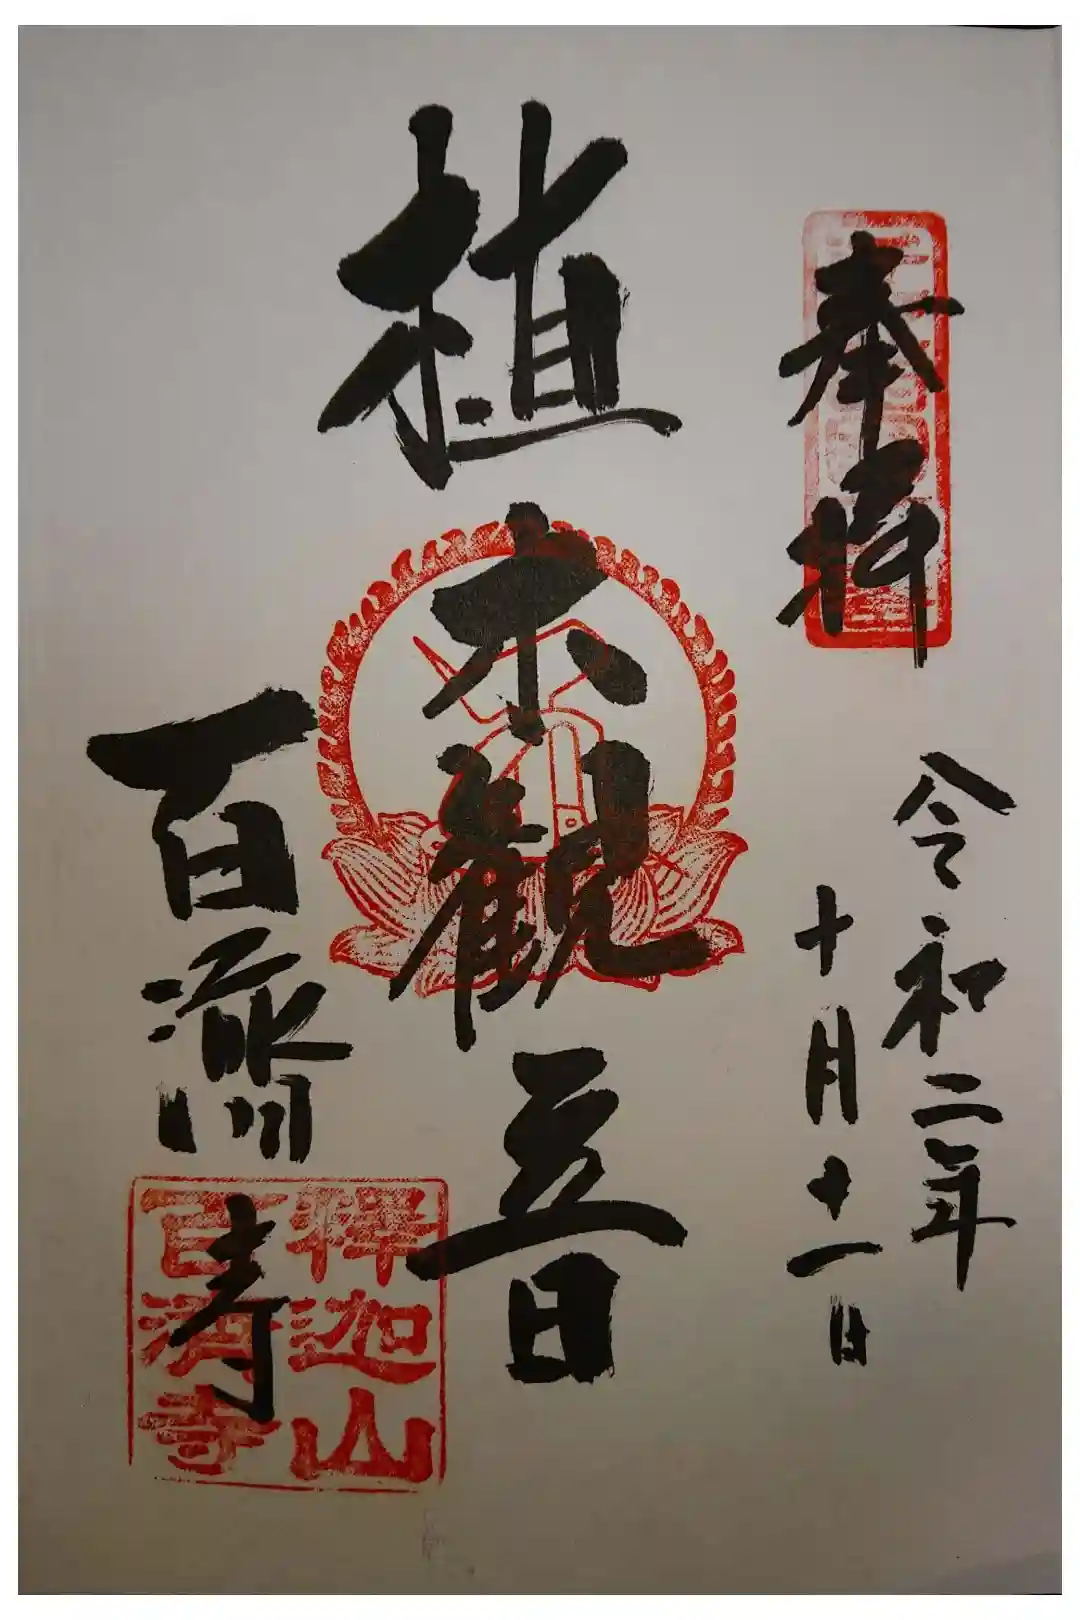 奉拝
令和二年
十月十一日
植木観音
百濟寺
釋迦山
百濟寺